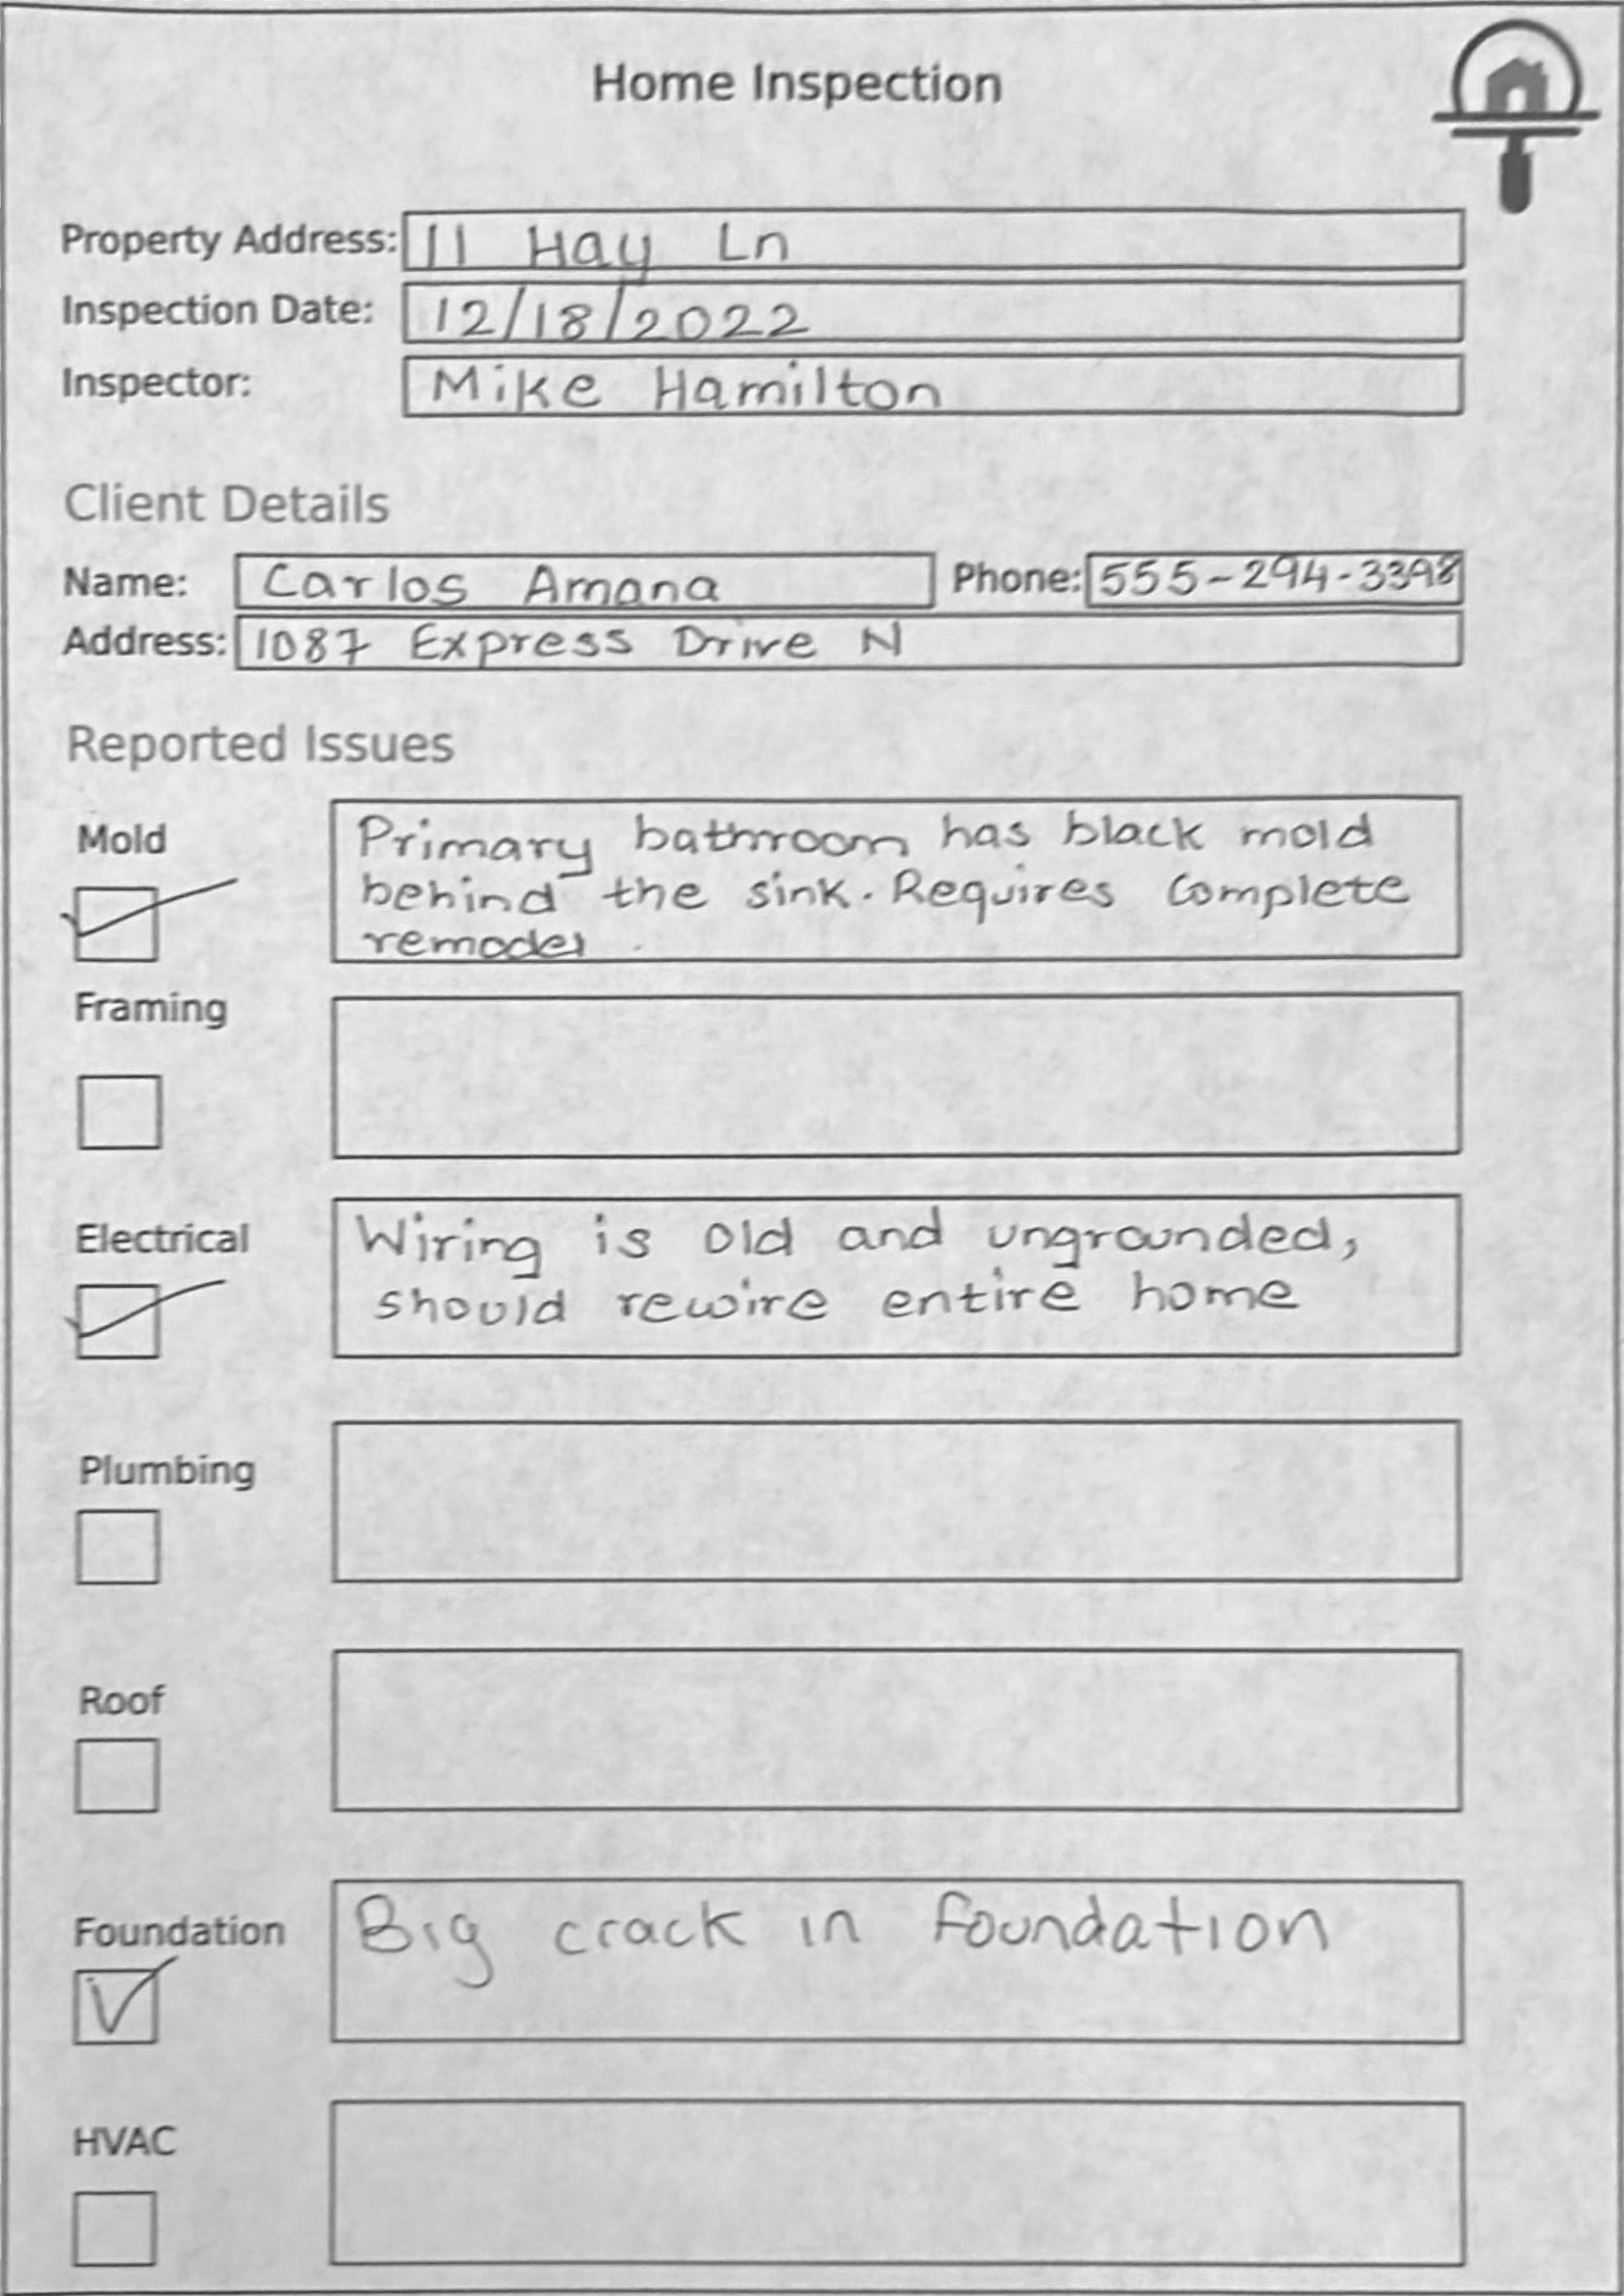 Home Inspection
Property Address: 11 Hay Ln
Inspection Date: 12/18/2022
Inspector: Mike Hamilton
Client Details
Name: Carlos Amana Phone: 555-294-3398
Address: 1087 Express Drive N
Reported Issues
Mold
Primary bathroom has black mold
behind the sink. Requires complete
remodel.
Framing
Electrical
Wiring is old and ungrounded,
should rewire entire home
Plumbing
Roof
Foundation
Big crack in foundation
HVAC